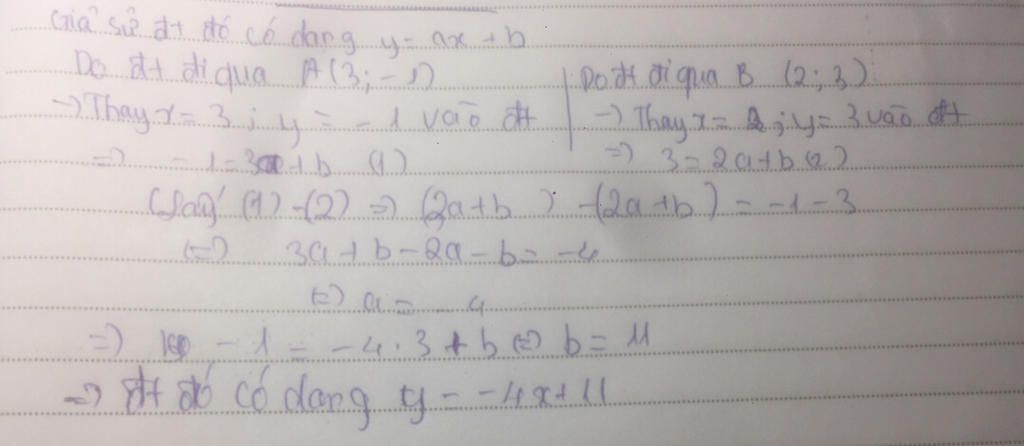 Giả sử đt đó có dạng y = ax + b
Do đt đi qua A(3; -1)
→ Thay x = 3; y = -1 vào đt
=> -1 = 3a + b (1)
Do đt đi qua B (2; 3)
→ Thay x = 2; y = 3 vào đt
=> 3 = 2a + b (2)
Lấy (1) - (2) => (2a + b) - (2a + b) = -1 - 3
<=> 3a + b - 2a - b = -4
<=> a = -4
=> -1 = -4 . 3 + b <=> b = 11
=> đt đó có dạng y = -4x + 11